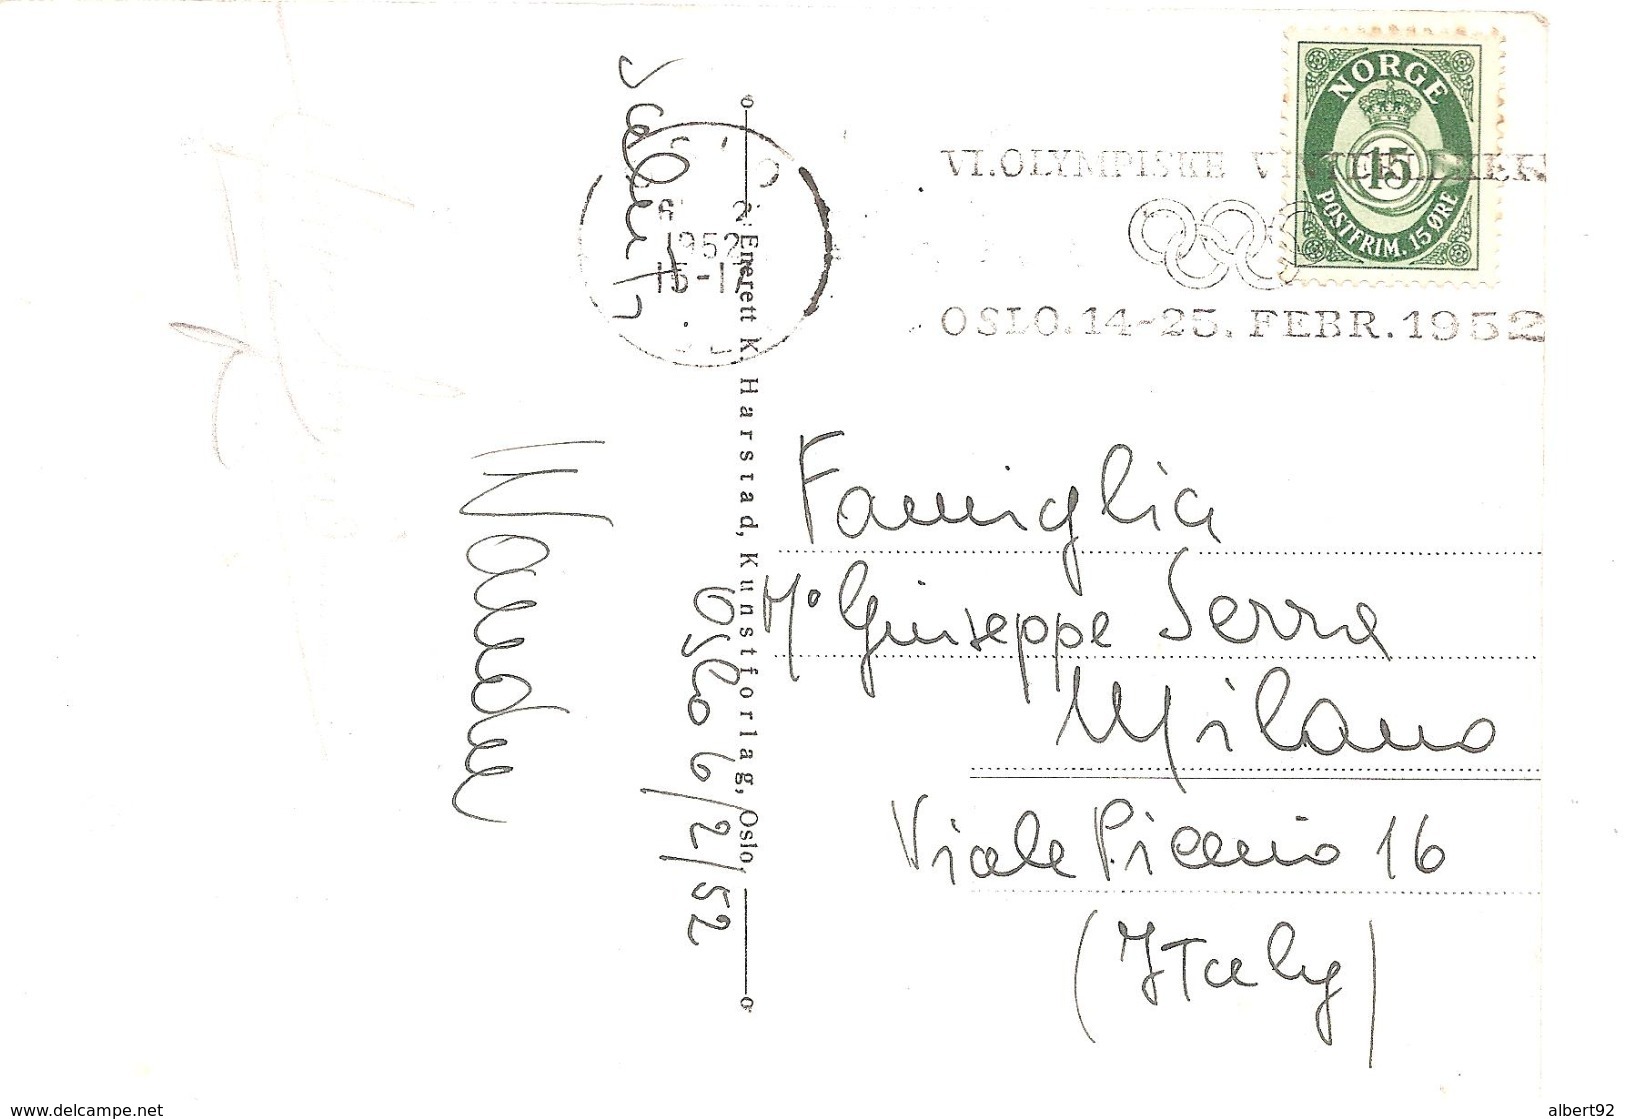 NORGE
15
POSTFRIM. 15 ØRE
VI. OLYMPISKE VINTERLEKER
OSLO. 14-25. FEBR. 1952
1952
Saluti
Wanda
Oslo 6/2/52
Enerett K. Harstad, Kunstforlag, Oslo.
Famiglia
Mº Giuseppe Serra
Milano
Viale Piceno 16
(Italy)
www.delcampe.net
albert92